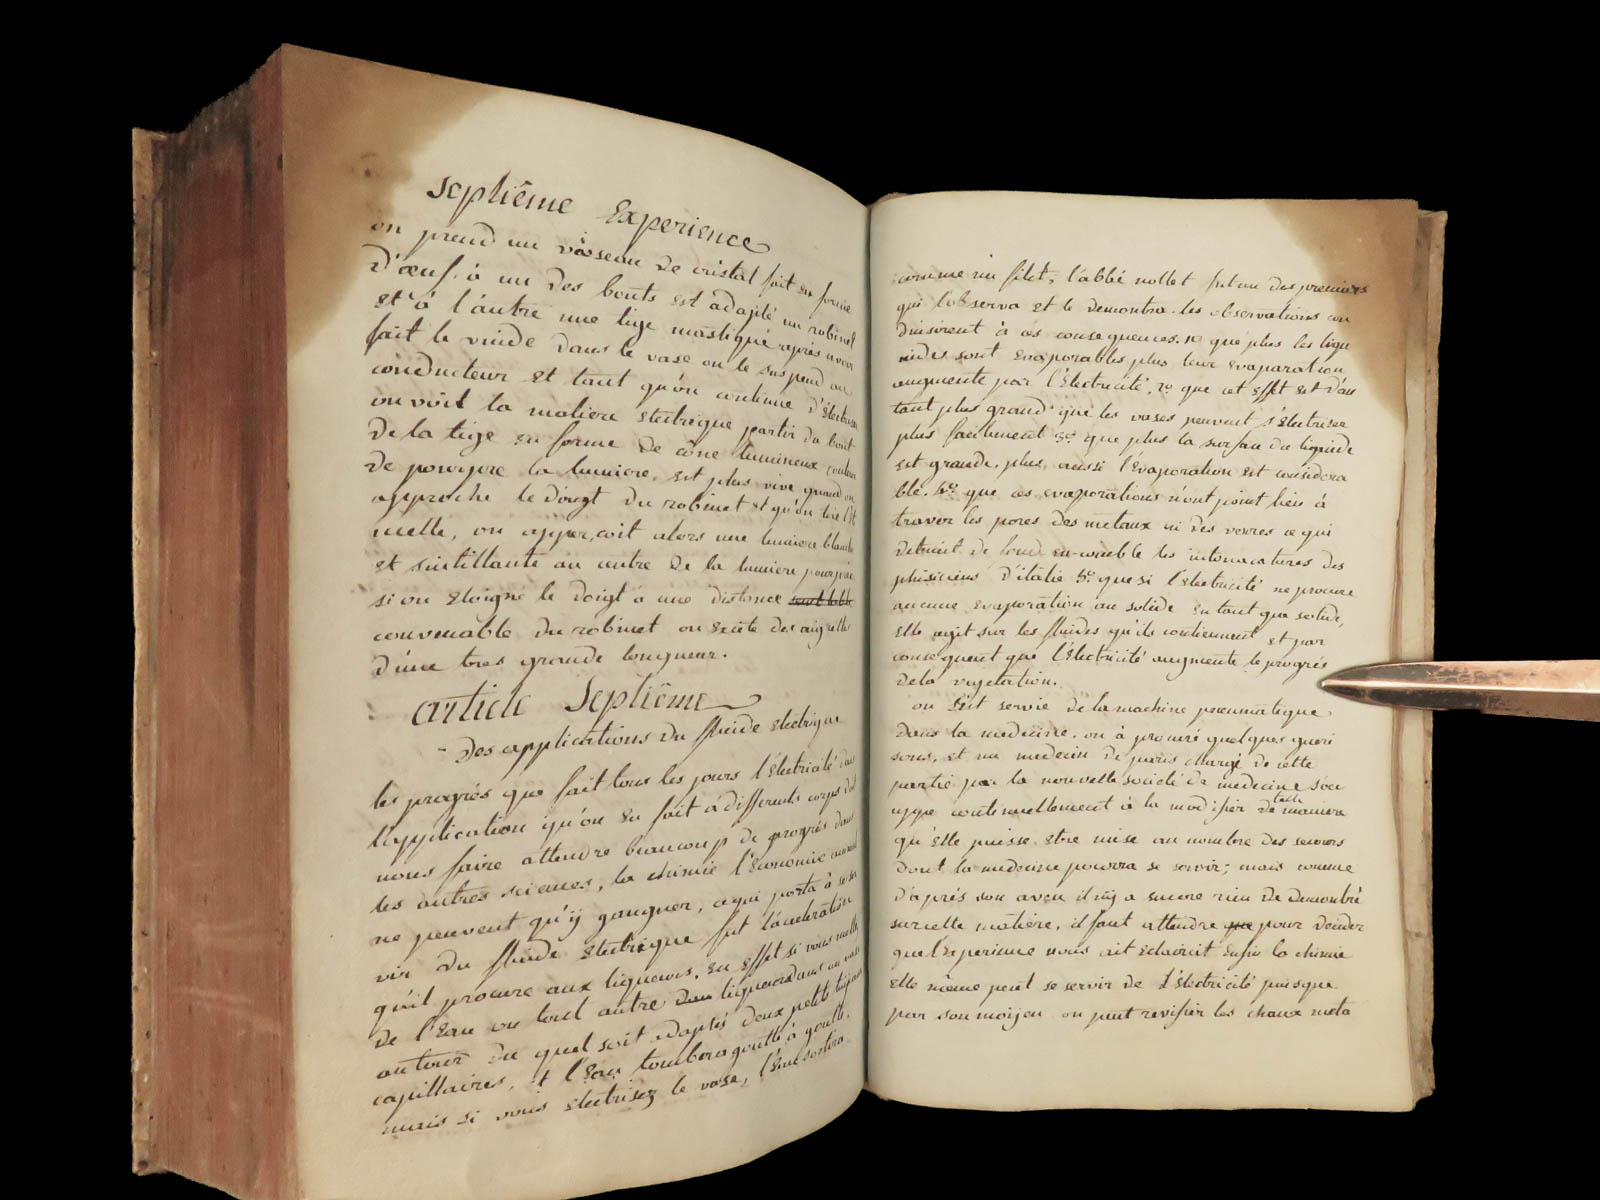 Septiême Experience
on prend un vaisseau de cristal fait en forme
d'œuf. à un des bouts est adapté un robinet
et à l'autre une tige mastiqué après avoir
fait le vuide dans le vase on le suspend au
conducteur et tant qu'on continue d'électriser
on voit la matiere electrique partir du bout
de la tige en forme de cône lumineux couleur
de pourpre la lumiere est plus vive quand on
approche le doigt du robinet et qu'on tire l'ét
incelle, on apperçoit alors une lumiere blanche
et sintillante au centre de la lumiere pourpre
si on eloigne le doigt à une distance
convenable du robinet on excite des aigrettes
d'une tres grande longueur.
article Septiême
Des applications du fluide électrique
les progrès que fait tous les jours l'électricité dans
l'application qu'on en fait à differents corps doit
nous faire attendre beaucoup de progrès dans
les autres sciences, la chimie l'économie animal
ne peuvent qu'ÿ gangner, ce qui porta à se ser
vir du fluide électrique fut l'acceleration
qu'il procure aux liqueurs, en effet si vous mettez
de l'eau ou tout autre liqueur dans un vase
autour du quel soit adaptés deux petits tuÿaux
capillaires, et l'eau tombera goutte à goutte,
mais si vous électrisez le vase, l'eau sortira
comme un filet, l'abbé nollet fut un des premiers
qui l'observa et le demontra. les observations con
duisirent à ces consequences. 1º que plus les liqu
uides sont evaporables plus leur evaporation
augmente par l'électricité. 2º que cet effet est d'au
tant plus grand que les vases peuvent s'électriser
plus facilement 3º que plus la surface du liquide
est grande, plus aussi l'évaporation est considera
ble. 4º que ces evaporations n'ont point lieu à
traver les pores des metaux ni des verres ce qui
detruit de fond en comble les intonacatures des
phisiciens d'italie 5º que si l'électricité ne procure
aucune evaporation au solide en tant que solide,
elle agit sur les fluides qu'ils contiennent et par
consequent que l'électricité augmente le progrès
de la vegetation.
on s'est servie de la machine pneumatique
dans la medecine. on à procuré quelques gueri
sons, et un medecin de paris chargé de cette
partie par la nouvelle société de medecine s'oc
uppe continuellement à la modifier de telle maniere
qu'elle puisse etre mise au nombre des secours
dont la medecine pourra se servir; mais comme
d'après son aveu il n'ÿ a encore rien de demontré
sur cette matière, il faut attendre pour decider
que l'experience nous ait eclaircit enfin la chimie
elle même peut se servir de l'électricité puisque
par son moÿen on peut revifier les chaux meta